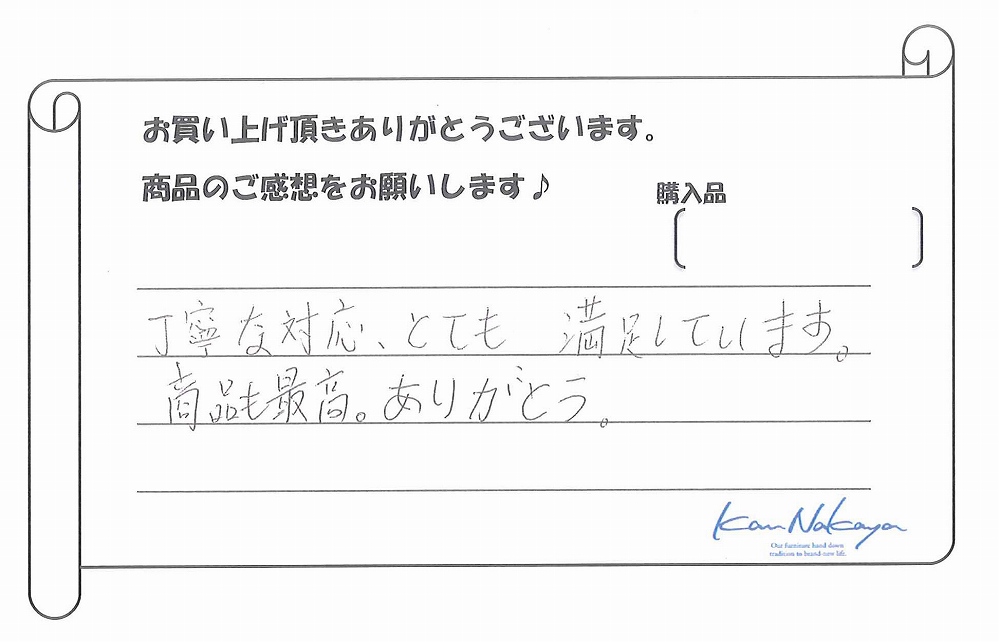 お買い上げ頂きありがとうございます。
商品のご感想をお願いします♪
購入品
丁寧な対応、とても 満足しています。
商品も最高。ありがとう。
Kan Nakaya
Our furniture hand down
tradition to brand-new life.